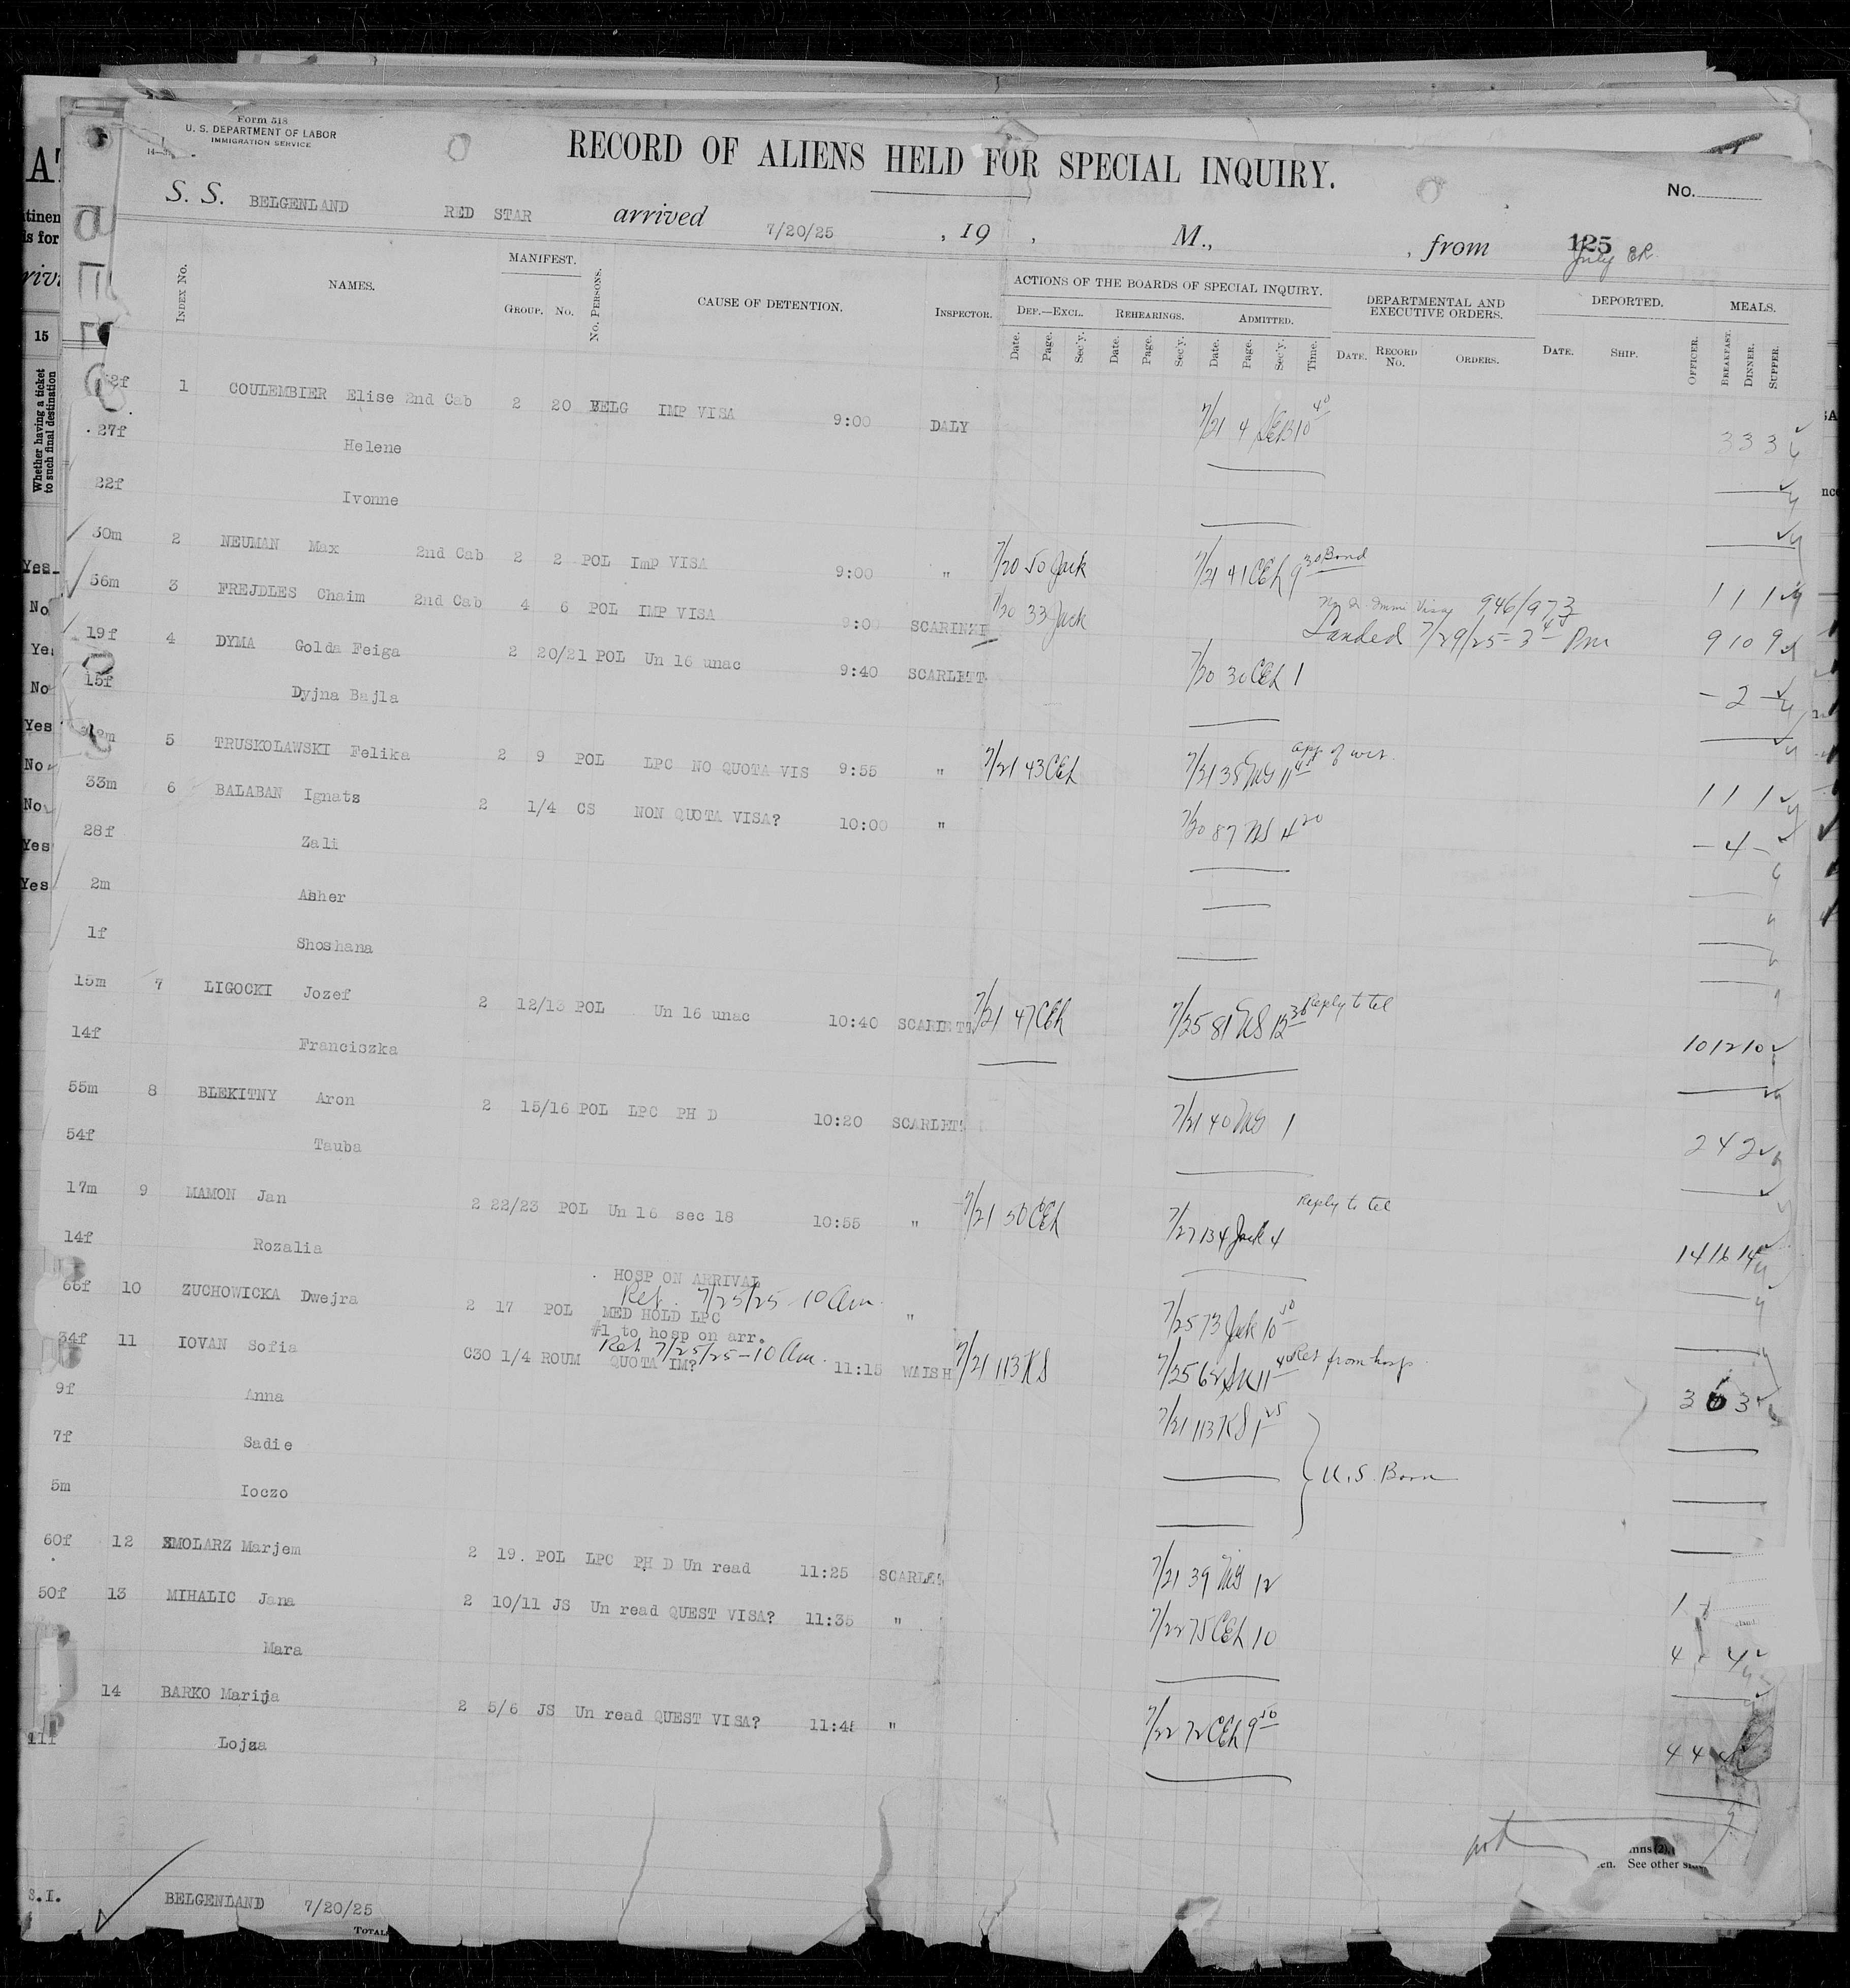 Form 518
U. S. DEPARTMENT OF LABOR
IMMIGRATION SERVICE
RECORD OF ALIENS HELD FOR SPECIAL INQUIRY.
No.
S. S. BELGENLAND RED STAR arrived 7/20/25 , 19 , M., , from 125
July ER
INDEX No. NAMES. MANIFEST. GROUP. No. No. PERSONS. CAUSE OF DETENTION. INSPECTOR.
ACTIONS OF THE BOARDS OF SPECIAL INQUIRY. DEPARTMENTAL AND EXECUTIVE ORDERS. DEPORTED. MEALS.
DEF.—EXCL. REHEARINGS. ADMITTED.
Date. Page. Sec'y. Date. Page. Sec'y. Date. Page. Sec'y. Time. DATE. RECORD No. ORDERS. DATE. SHIP. OFFICER. BREAKFAST. DINNER. SUPPER.
15
Whether having a ticket to such final destination
1 COULEMBIER Elise 2nd Cab 2 20 BELG IMP VISA 9:00 DALY 7/21 4 10 40 3 3 3
27f Helene
22f Ivonne
30m 2 NEUMAN Max 2nd Cab 2 2 POL Imp VISA 9:00 " 7/20 50 Jack 7/21 41 CEH 9 30 Bond 1 1 1
56m 3 FREJDLES Chaim 2nd Cab 4 6 POL IMP VISA 9:00 7/20 33 Jack 946/973
Landed 7/29/25 - 3 45 Pm 9 10 9
19f 4 DYMA Golda Feiga 2 20/21 POL Un 16 unac 9:40 SCARLETT 7/20 30 CEH 1 - 2 -
15f Dyjna Bajla
5 TRUSKOLAWSKI Felika 2 9 POL LPC NO QUOTA VIS 9:55 " 7/21 43 CEH 11 1 1 1
33m 6 BALABAN Ignats 2 1/4 CS NON QUOTA VISA? 10:00 " 7/20 87 4 20 - 4 -
28f Zali
2m Asher
1f Shoshana
15m 7 LIGOCKI Jozef 2 12/13 POL Un 16 unac 10:40 SCARLETT 7/21 47 CEH 7/25 81 12 30 Reply to tel 10 12 10
14f Franciszka
55m 8 BLEKITNY Aron 2 15/16 POL LPC PH D 10:20 SCARLET 7/21 40 1 2 4 2
54f Tauba
17m 9 MAMON Jan 2 22/23 POL Un 16 sec 18 10:55 " 7/21 50 CEH 7/27 134 Jack 4 Reply to tel 14 16 14
14f Rozalia
HOSP ON ARRIVAL
Ret. 7/25/25 - 10 am.
66f 10 ZUCHOWICKA Dwejra 2 17 POL MED HOLD LPC " 7/25 73 Jack 10 50
#1 to hosp on arr.
Ret 7/25/25 - 10 am.
34f 11 IOVAN Sofia C30 1/4 ROUM QUOTA IM? 11:15 WAISH 7/21 113 KS 7/25 11 40 Ret from hosp. 3 6 3
9f Anna 7/21 113 KS 1 25
7f Sadie
U.S. Born
5m Ioczo
60f 12 SMOLARZ Marjem 2 19. POL LPC PH D Un read 11:25 SCARLET 7/21 39 12 1
50f 13 MIHALIC Jana 2 10/11 JS Un read QUEST VISA? 11:35 " 7/22 75 CEH 10 4 4
Mara
14 BARKO Marija 2 5/6 JS Un read QUEST VISA? 11:45 " 7/22 72 CEH 9 50 4 4 4
11f Lojza
See other
S.I.
BELGENLAND 7/20/25
TOTAL